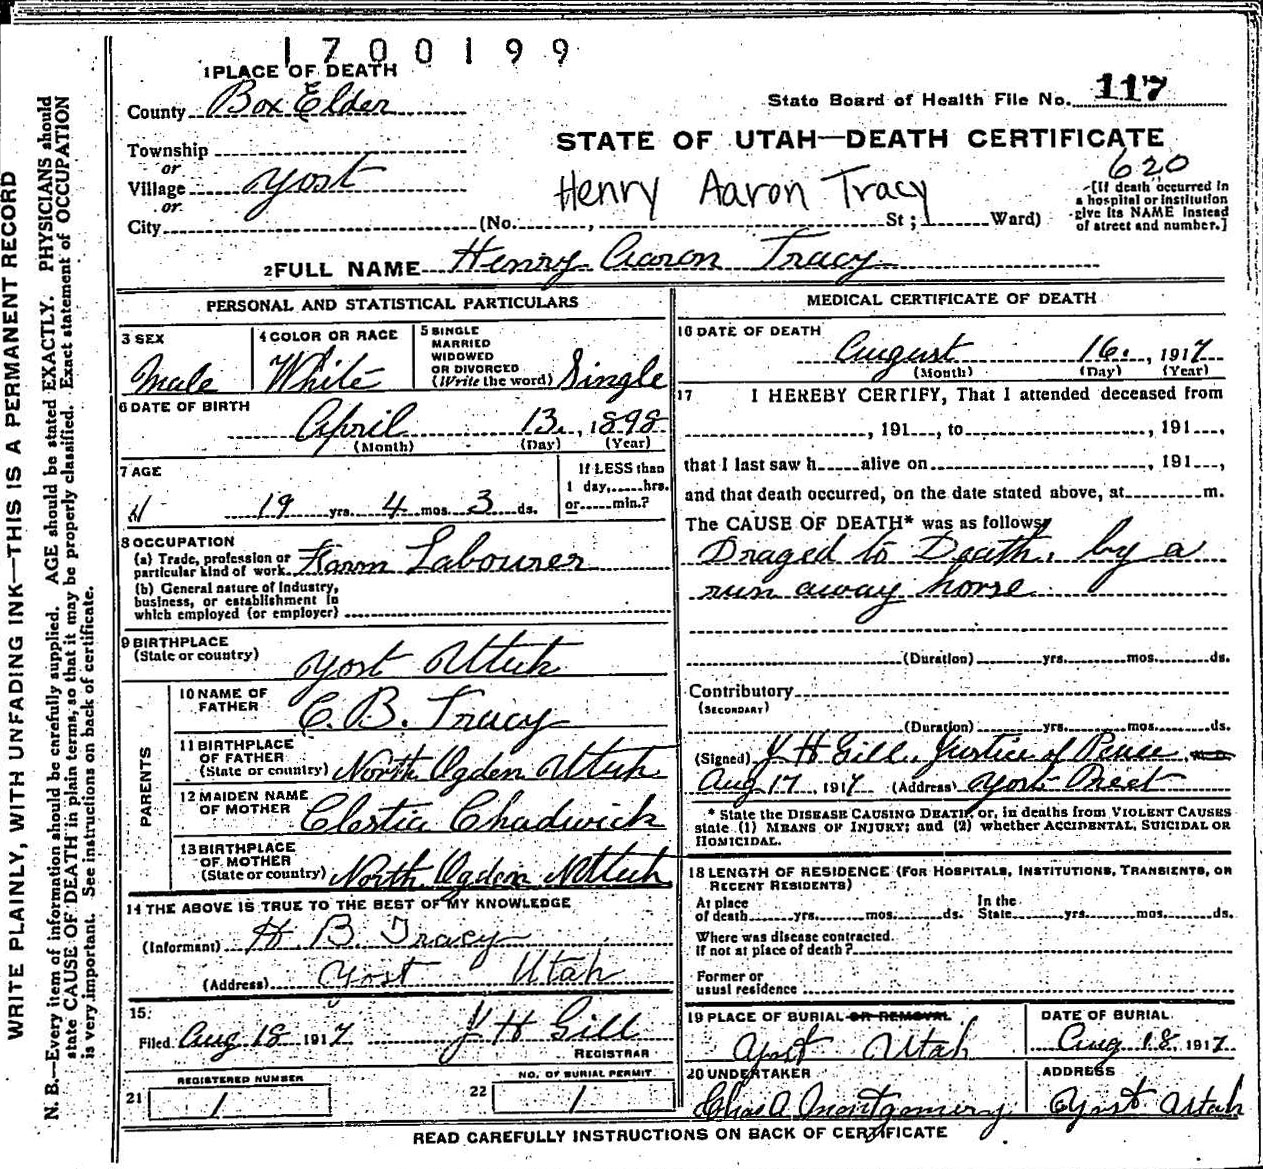 1700199
1 PLACE OF DEATH
County Box Elder
State Board of Health File No. 117
STATE OF UTAH—DEATH CERTIFICATE
Township
or
Village Yost
or
City
620
Henry Aaron Tracy
(No. , St; Ward)
[If death occurred in
a hospital or institution
give its NAME instead
of street and number.]
2 FULL NAME Henry Aaron Tracy
PERSONAL AND STATISTICAL PARTICULARS
3 SEX
Male
4 COLOR OR RACE
White
5 SINGLE
MARRIED
WIDOWED
OR DIVORCED
(Write the word) Single
6 DATE OF BIRTH
April 13, 1898
(Month) (Day) (Year)
7 AGE
19 yrs. 4 mos. 3 ds.
If LESS than
1 day, hrs.
or min.?
8 OCCUPATION
(a) Trade, profession or
particular kind of work Farm Labourer
(b) General nature of industry,
business, or establishment in
which employed (or employer)
9 BIRTHPLACE
(State or country) Yost Utah
PARENTS
10 NAME OF
FATHER C. B. Tracy
11 BIRTHPLACE
OF FATHER
(State or country) North Ogden Utah
12 MAIDEN NAME
OF MOTHER Chadwick
13 BIRTHPLACE
OF MOTHER
(State or country) North Ogden Utah
14 THE ABOVE IS TRUE TO THE BEST OF MY KNOWLEDGE
(Informant) H B. Tracy
(Address) Yost Utah
15.
Filed Aug 18 1917 J H Gill
REGISTRAR
REGISTERED NUMBER
21 1
NO. OF BURIAL PERMIT
22 1
MEDICAL CERTIFICATE OF DEATH
16 DATE OF DEATH
August 16, 1917
(Month) (Day) (Year)
17 I HEREBY CERTIFY, That I attended deceased from
, 191 , to , 191 ,
that I last saw h alive on , 191 ,
and that death occurred, on the date stated above, at m.
The CAUSE OF DEATH* was as follows:
Draged to Death, by a
run away horse
(Duration) yrs. mos. ds.
Contributory
(SECONDARY)
(Duration) yrs. mos. ds.
(Signed) J H Gill, Justice of Peace, M.D.
Aug 17, 1917 (Address) Yost
* State the DISEASE CAUSING DEATH, or, in deaths from VIOLENT CAUSES
state (1) MEANS OF INJURY; and (2) whether ACCIDENTAL, SUICIDAL OR
HOMICIDAL.
18 LENGTH OF RESIDENCE (FOR HOSPITALS, INSTITUTIONS, TRANSIENTS, OR
RECENT RESIDENTS)
At place
of death yrs. mos. ds.
In the
State yrs. mos. ds.
Where was disease contracted.
If not at place of death?
Former or
usual residence
19 PLACE OF BURIAL OR REMOVAL
Yost Utah
DATE OF BURIAL
Aug 18 1917
20 UNDERTAKER
Chas A. Montgomery
ADDRESS
Yost Utah
READ CAREFULLY INSTRUCTIONS ON BACK OF CERTIFICATE
WRITE PLAINLY, WITH UNFADING INK—THIS IS A PERMANENT RECORD
N. B.—Every item of information should be carefully supplied. AGE should be stated EXACTLY. PHYSICIANS should
state CAUSE OF DEATH in plain terms, so that it may be properly classified. Exact statement of OCCUPATION
is very important. See instructions on back of certificate.